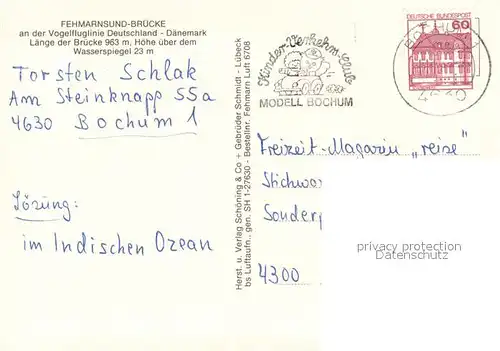 FEHMARNSUND-BRÜCKE
an der Vogelfluglinie Deutschland - Dänemark
Länge der Brücke 963 m, Höhe über dem
Wasserspiegel 23 m
Torsten Schlak
Am Steinknapp 55a
4630 Bochum 1
Lösung:
im Indischen Ozean
Herst. u. Verlag Schöning & Co + Gebrüder Schmidt - Lübeck
bs Luftaufn., gen. SH 1-27630 - Bestellnr. Fehmarn Luft 6708
Kinder-Verkehrs-Club
MODELL BOCHUM
DEUTSCHE BUNDESPOST
60
BOCHUM
4630
Freizeit-Magazin „reise"
Stichwo
Sonder
4300
privacy protection
Datenschutz